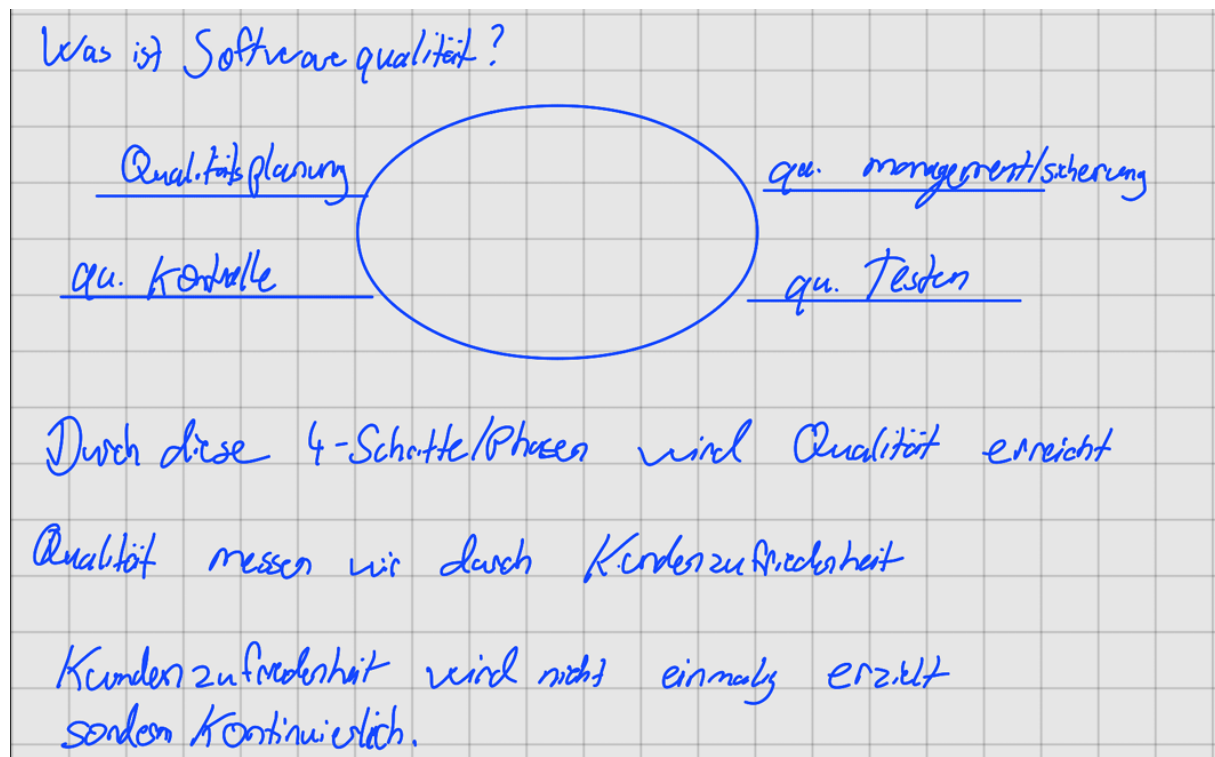 Was ist Softwarequalität?
Qualitätsplanung
qu. management/sicherung
qu. Kontrolle
qu. Testen
Durch diese 4-Schritte/Phasen wird Qualität erreicht
Qualität messen wir durch Kundenzufriedenheit
Kundenzufriedenheit wird nicht einmalig erzielt
sondern Kontinuierlich.